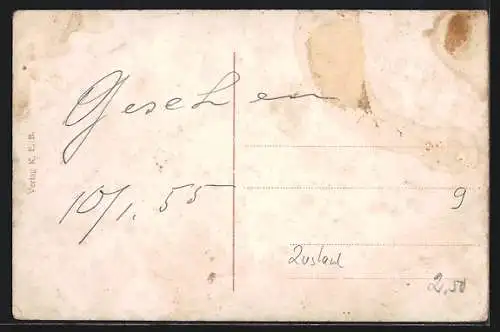 Gesehen
10/1. 55
Verlag K. E. B.
9
Zustand
2,50